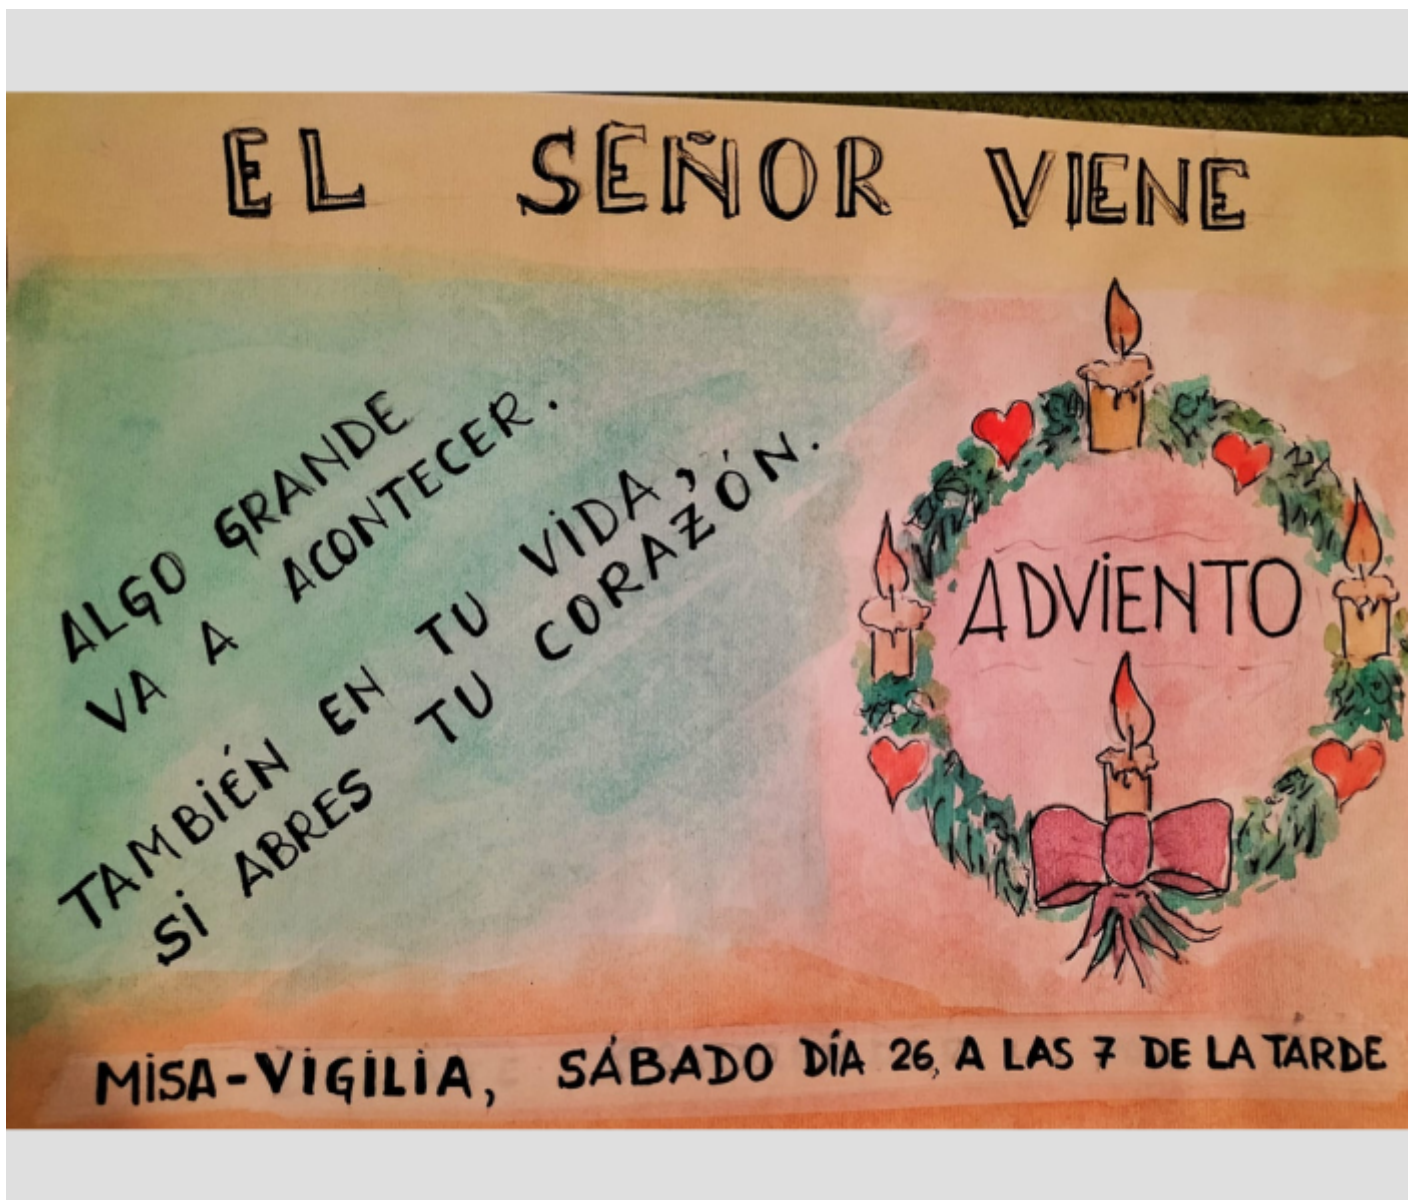 EL SEÑOR VIENE
ALGO GRANDE
VA A ACONTECER.
TAMBIÉN EN TU VIDA,
SI ABRES TU CORAZÓN.
ADVIENTO
MISA-VIGILIA, SÁBADO DÍA 26, A LAS 7 DE LA TARDE